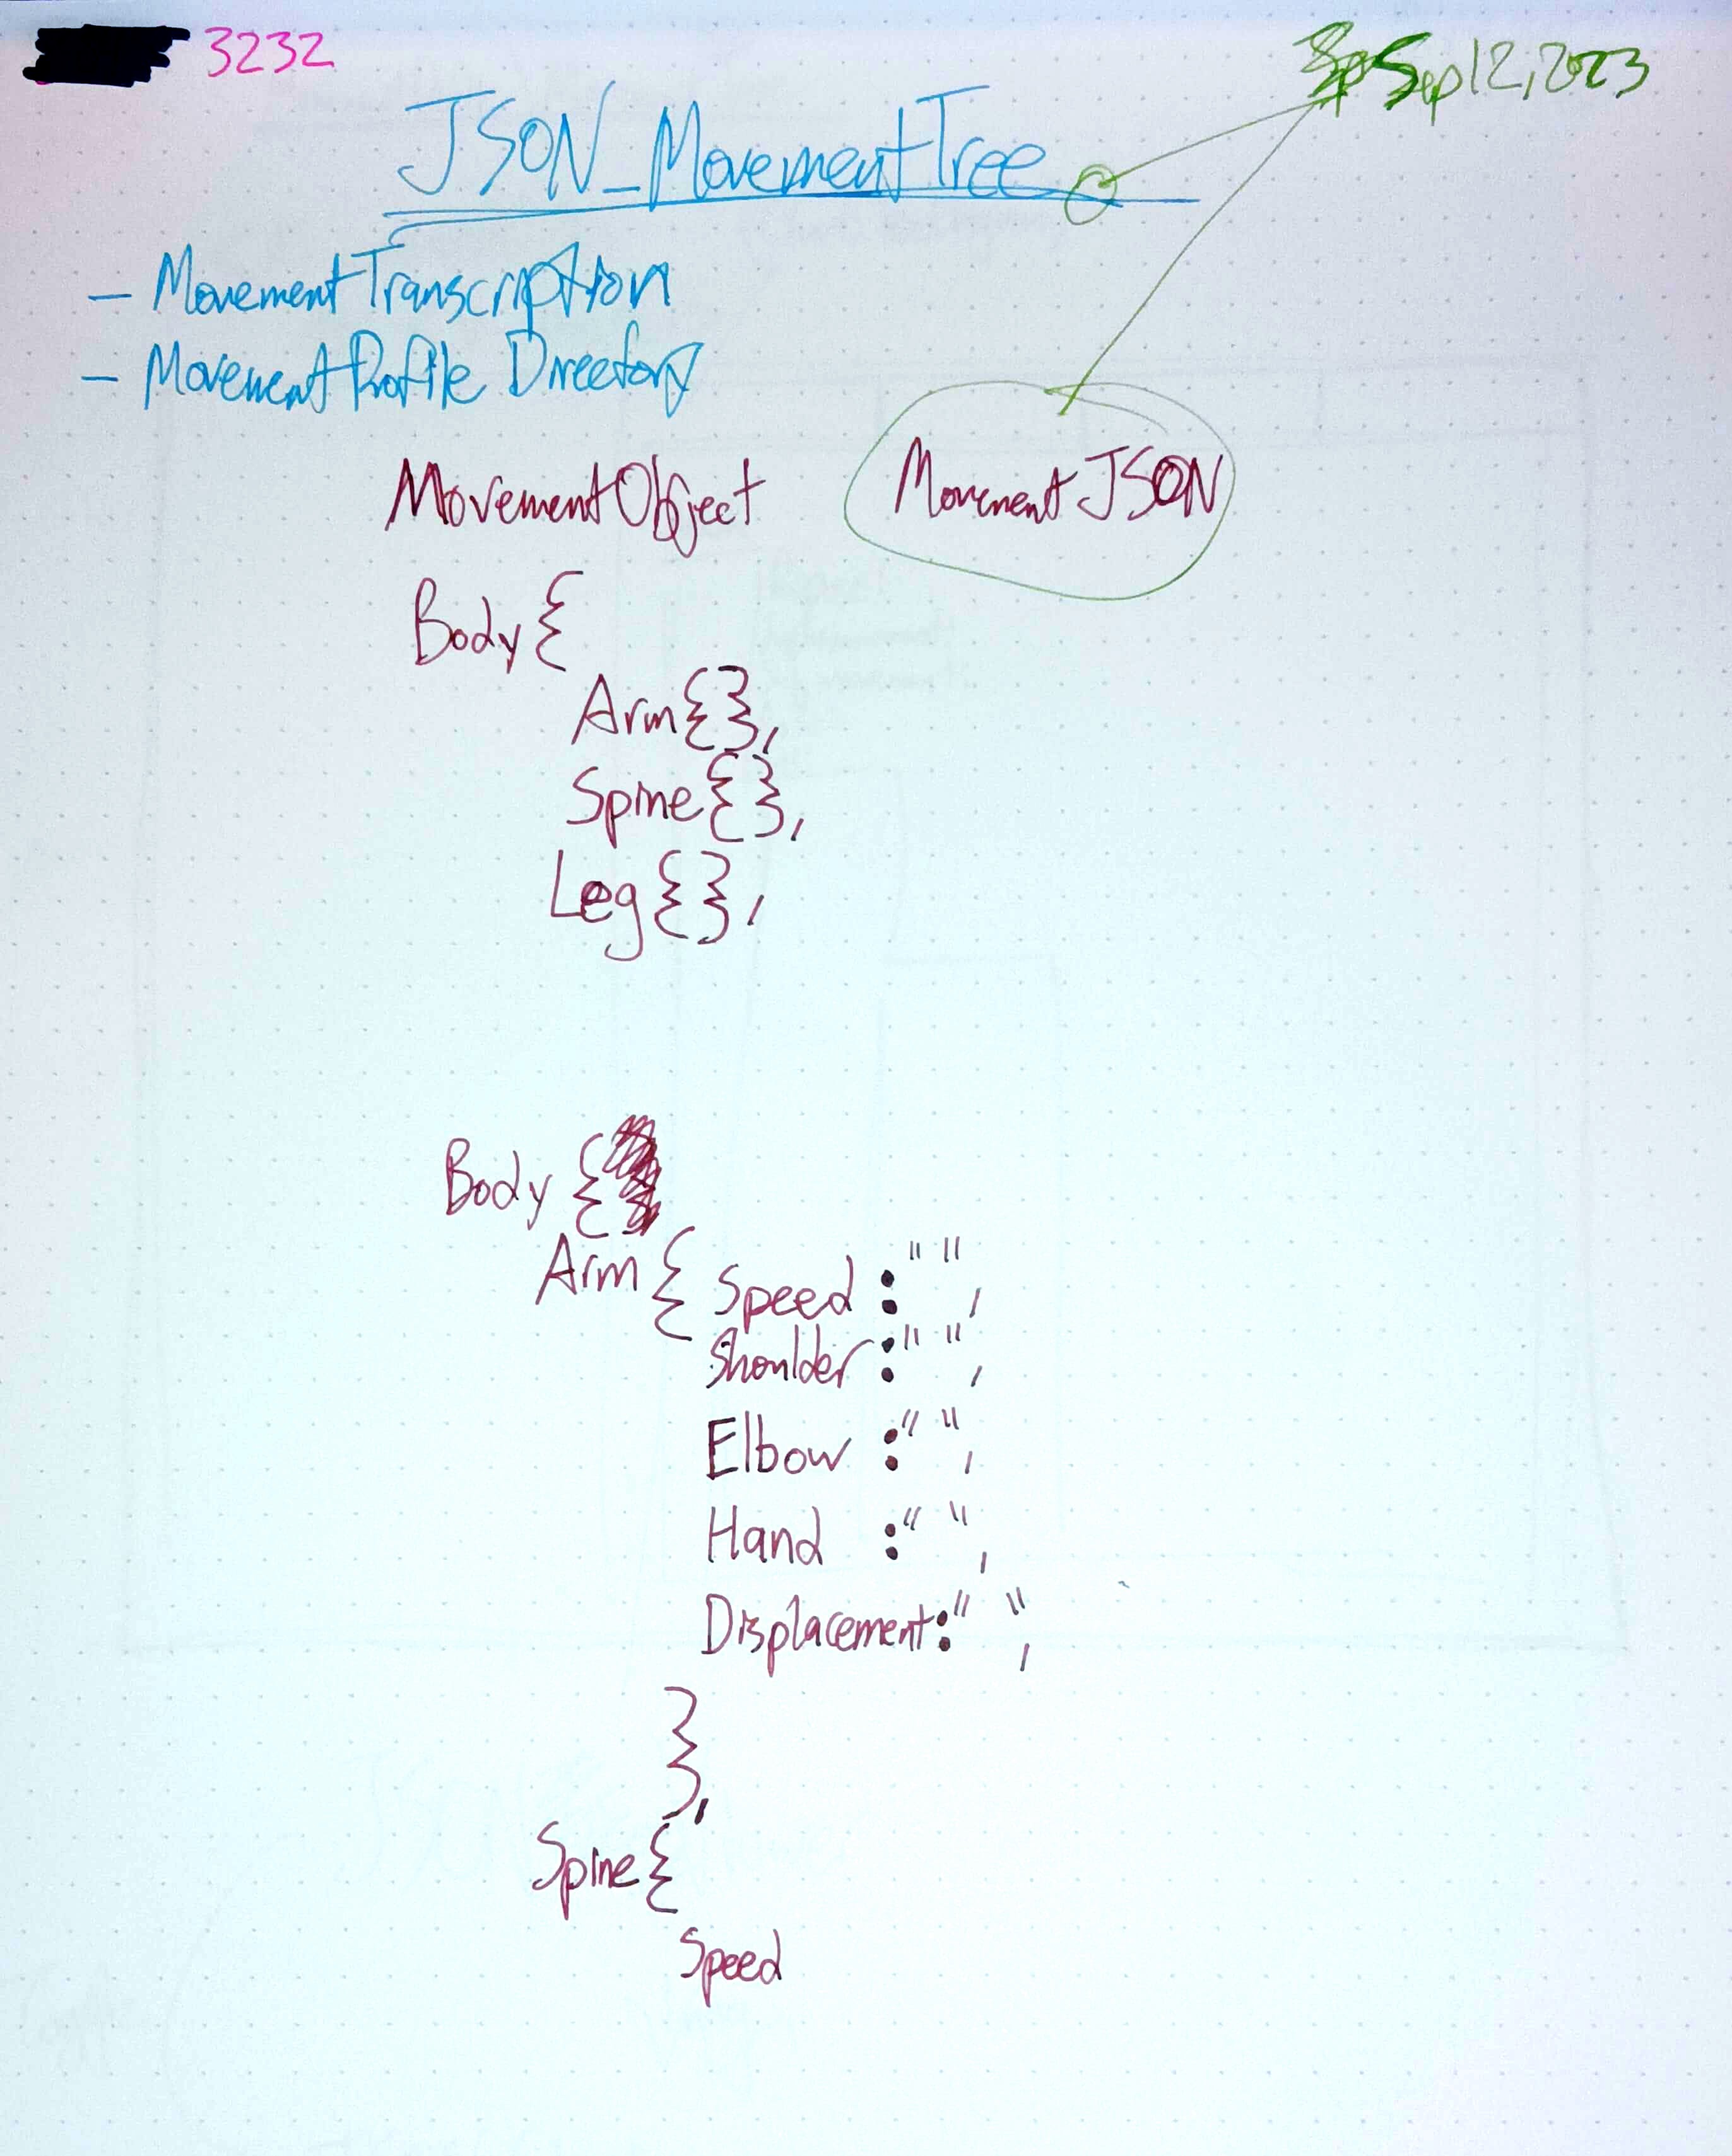 3232
Sep 12, 2023
JSON_MovementTree
- MovementTranscription
- MovementProfile Directory
MovementObject MovementJSON
Body {
Arm{},
Spine{},
Leg{},
Body {
Arm { Speed : " ",
Shoulder : " ",
Elbow : " ",
Hand : " ",
Displacement : " ",
},
Spine {
Speed